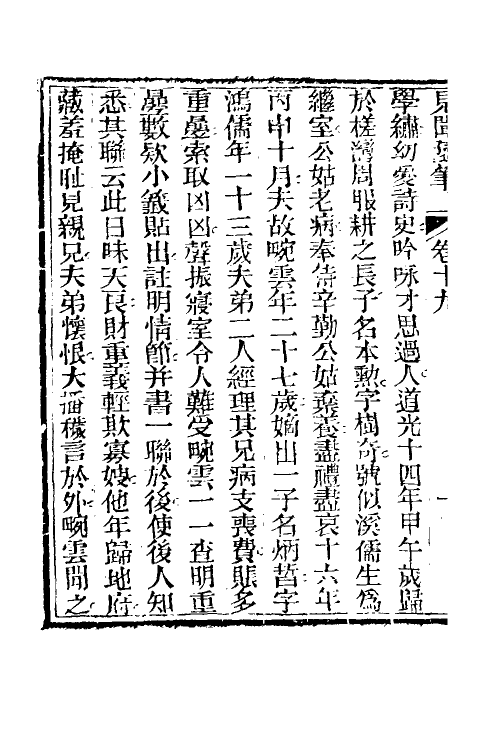 見聞隨筆 卷十九 一
學繡幼愛詩史吟咏才思過人道光十四年甲午歲歸
於槎灣周服耕之長子名本勲字樹奇號似溪儒生為
繼室公姑老病奉侍辛勤公姑棄養盡禮盡哀十六年
丙申十月夫故畹雲年二十七歲嫡出一子名炳哲字
鴻儒年一十三歲夫弟二人經理其兄病支喪費賬多
重叠索取凶凶聲振寢室令人難受畹雲一一查明重
叠數欵小籤貼出註明情節并書一聯於後使後人知
悉其聯云此日昧天良財重義輕欺寡嫂他年歸地府
藏羞掩耻見親兄夫弟懷恨大播穢言於外畹雲聞之